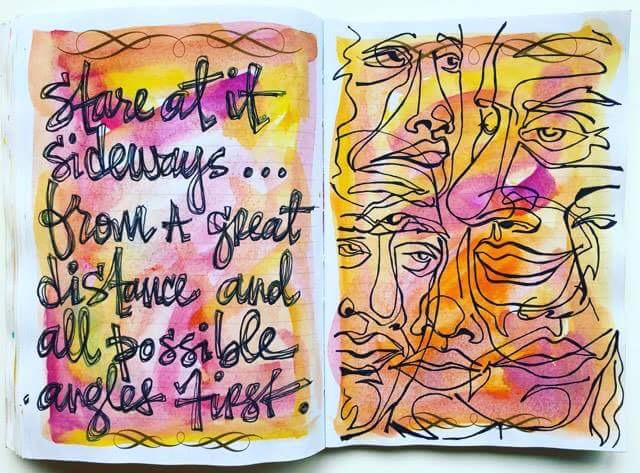 Stare at it
sideways...
from A great
distance and
all possible
angles first.